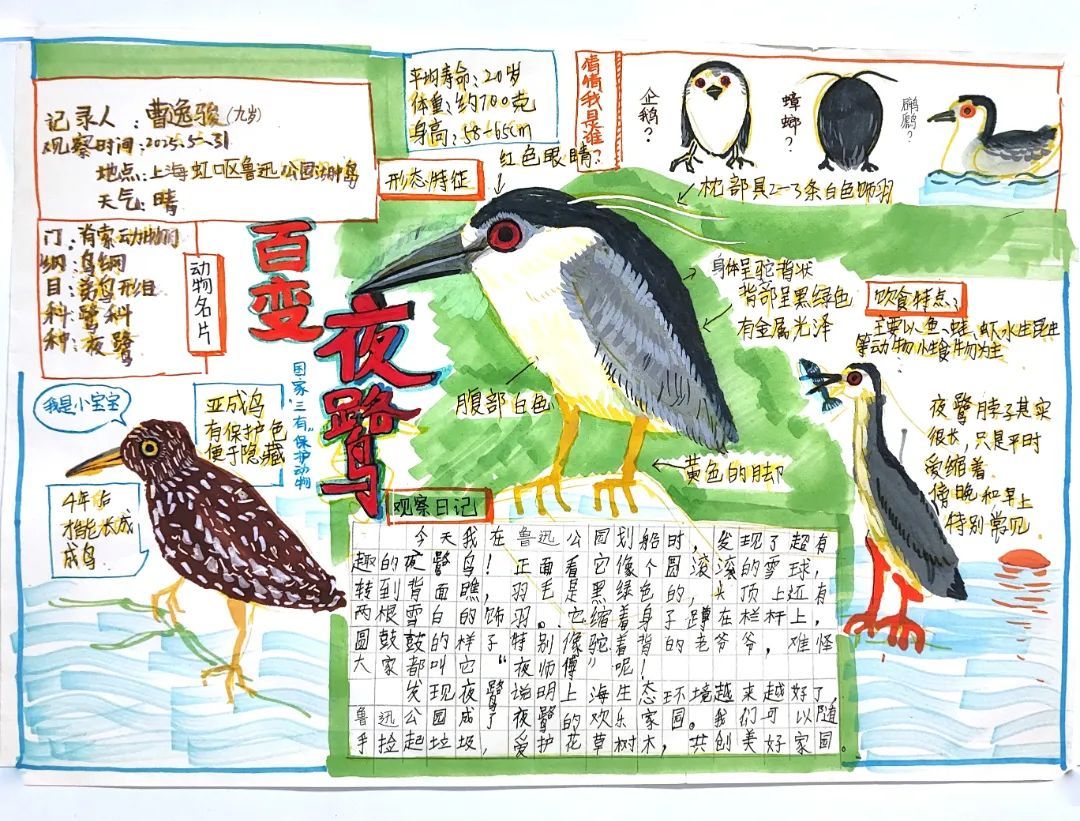 记录人：曹逸骏（九岁）
观察时间：2025.5-31
地点：上海虹口区鲁迅公园湖中岛
天气：晴
平均寿命：20岁
体重：约700克
身高：58-65cm
猜猜我是谁？
企鹅？
蟑螂？
䴙䴘？
形态特征
红色眼睛
枕部具2-3条白色饰羽
身体呈驼背状
背部呈黑绿色
有金属光泽
腹部白色
黄色的脚
门：脊索动物门
纲：鸟纲
目：
科：鹭科
种：夜鹭
动物名片
百变
夜鹭
国家"三有"保护动物
饮食特点：
主要以鱼、蛙、虾、水生昆虫
等动物小性食物为主
夜鹭脖子其实
很长，只是平时
爱缩着.
傍晚和早上
特别常见
我是小宝宝
亚成鸟
有保护色
便于隐藏
4年后
才能长成
成鸟
观察日记
今天我在鲁迅公园划船时，发现了超有
趣的夜鹭鸟！正面看它像个圆滚滚的雪球，
转到背面瞧，羽毛是黑绿色的，头顶上还有
两根雪白的饰羽。它缩着身子蹲在栏杆上，
圆鼓鼓的样子特别像驼着背的老爷爷，难怪
大家都叫它"夜师傅"呢！
发现夜鹭说明上海生态环境越来越好了，
鲁迅公园成了夜鹭的欢乐家园。我们可以随
手捡起垃圾，爱护花草树木，共创美好家园。